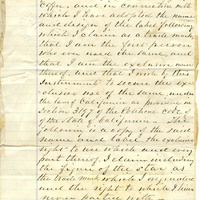 Office, and in connection with
which I have adopted the name
and design of the label following
which I claim as a trade mark
that I am the first person
who ever used the same, and
that I am the exclusive owner
thereof, and that I wish by this
Instrument to secure the ex-
clusive use of the same under
the laws of California as provided in
Section 3197 of the Political Code of
the State of California. The
following is a copy of the said
name and label the exclusive
right to use which and every
part thereof I claim including
the figure of the star as
the trade mark which I originated
and the right to which I have
never parted with